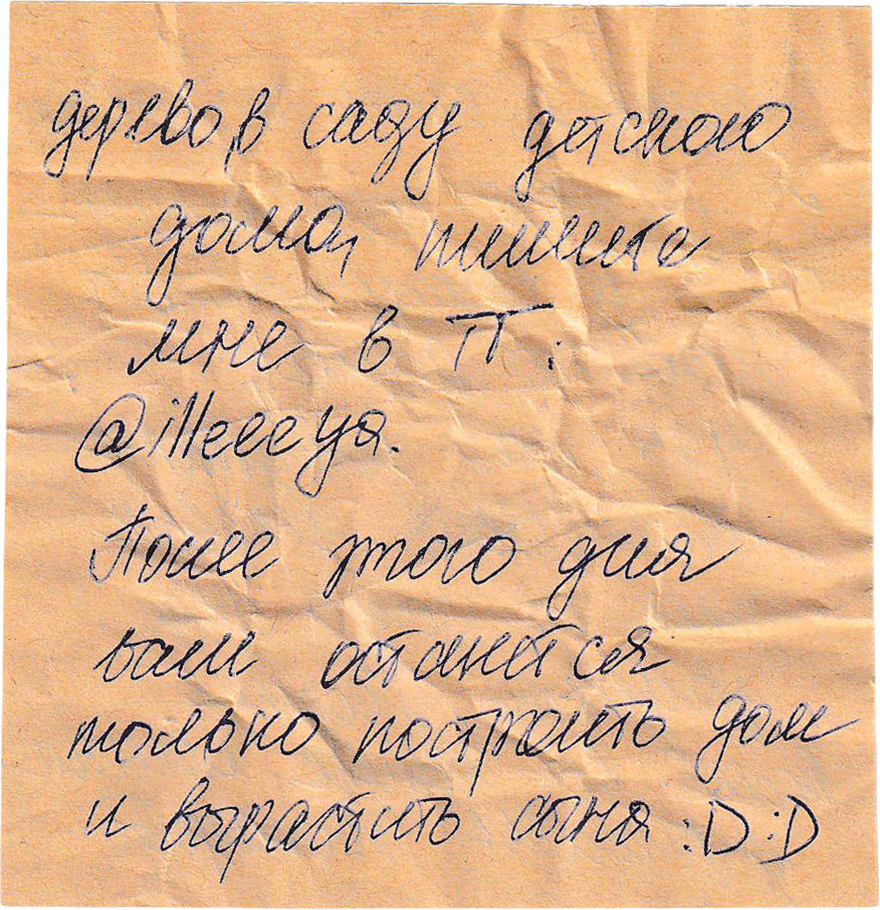 дерево в саду детского
дома, пишите
мне в ТГ:
@illeeeya.
После этого дня
вам останется
только построить дом
и вырастить сына :D :D